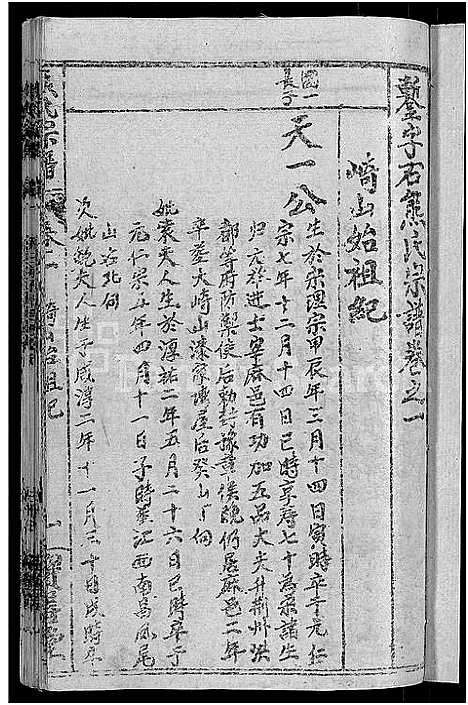 鑿字石熊氏宗譜卷之一
崎山始祖紀
國一
長子
天一公
生於宋理宗甲辰年三月十四日寅時卒于元仁
宗七年十二月十四日巳時享壽七十為宋諸生
归元举进士宰麻邑有功加五品大夫升荊州洪
部等府防禦使后勅封豫章侯晚仍居麻邑二年
卒葬大崎山漆家塆屋后癸山丁向
妣袁夫人生於淳祐二年五月二十六日巳時卒于
元仁宗五年四月十一日子時葬江西南昌凤尾
山治北向
次妣鲍夫人生于咸淳二年十一月三十日戌時卒
熊氏宗譜
卷一
崎山始祖紀
一
堂